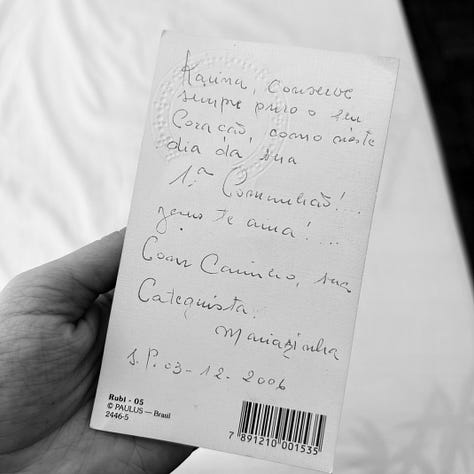 Karina, conserve
sempre puro o seu
Coração, como neste
dia da sua
1.ª Comunhão!...
Jesus te ama!...
Com Carinho, sua
Catequista:
Mariazinha
S.P. 03-12-2006
Rubi - 05
© PAULUS — Brasil
2446-5
7 891210 001535